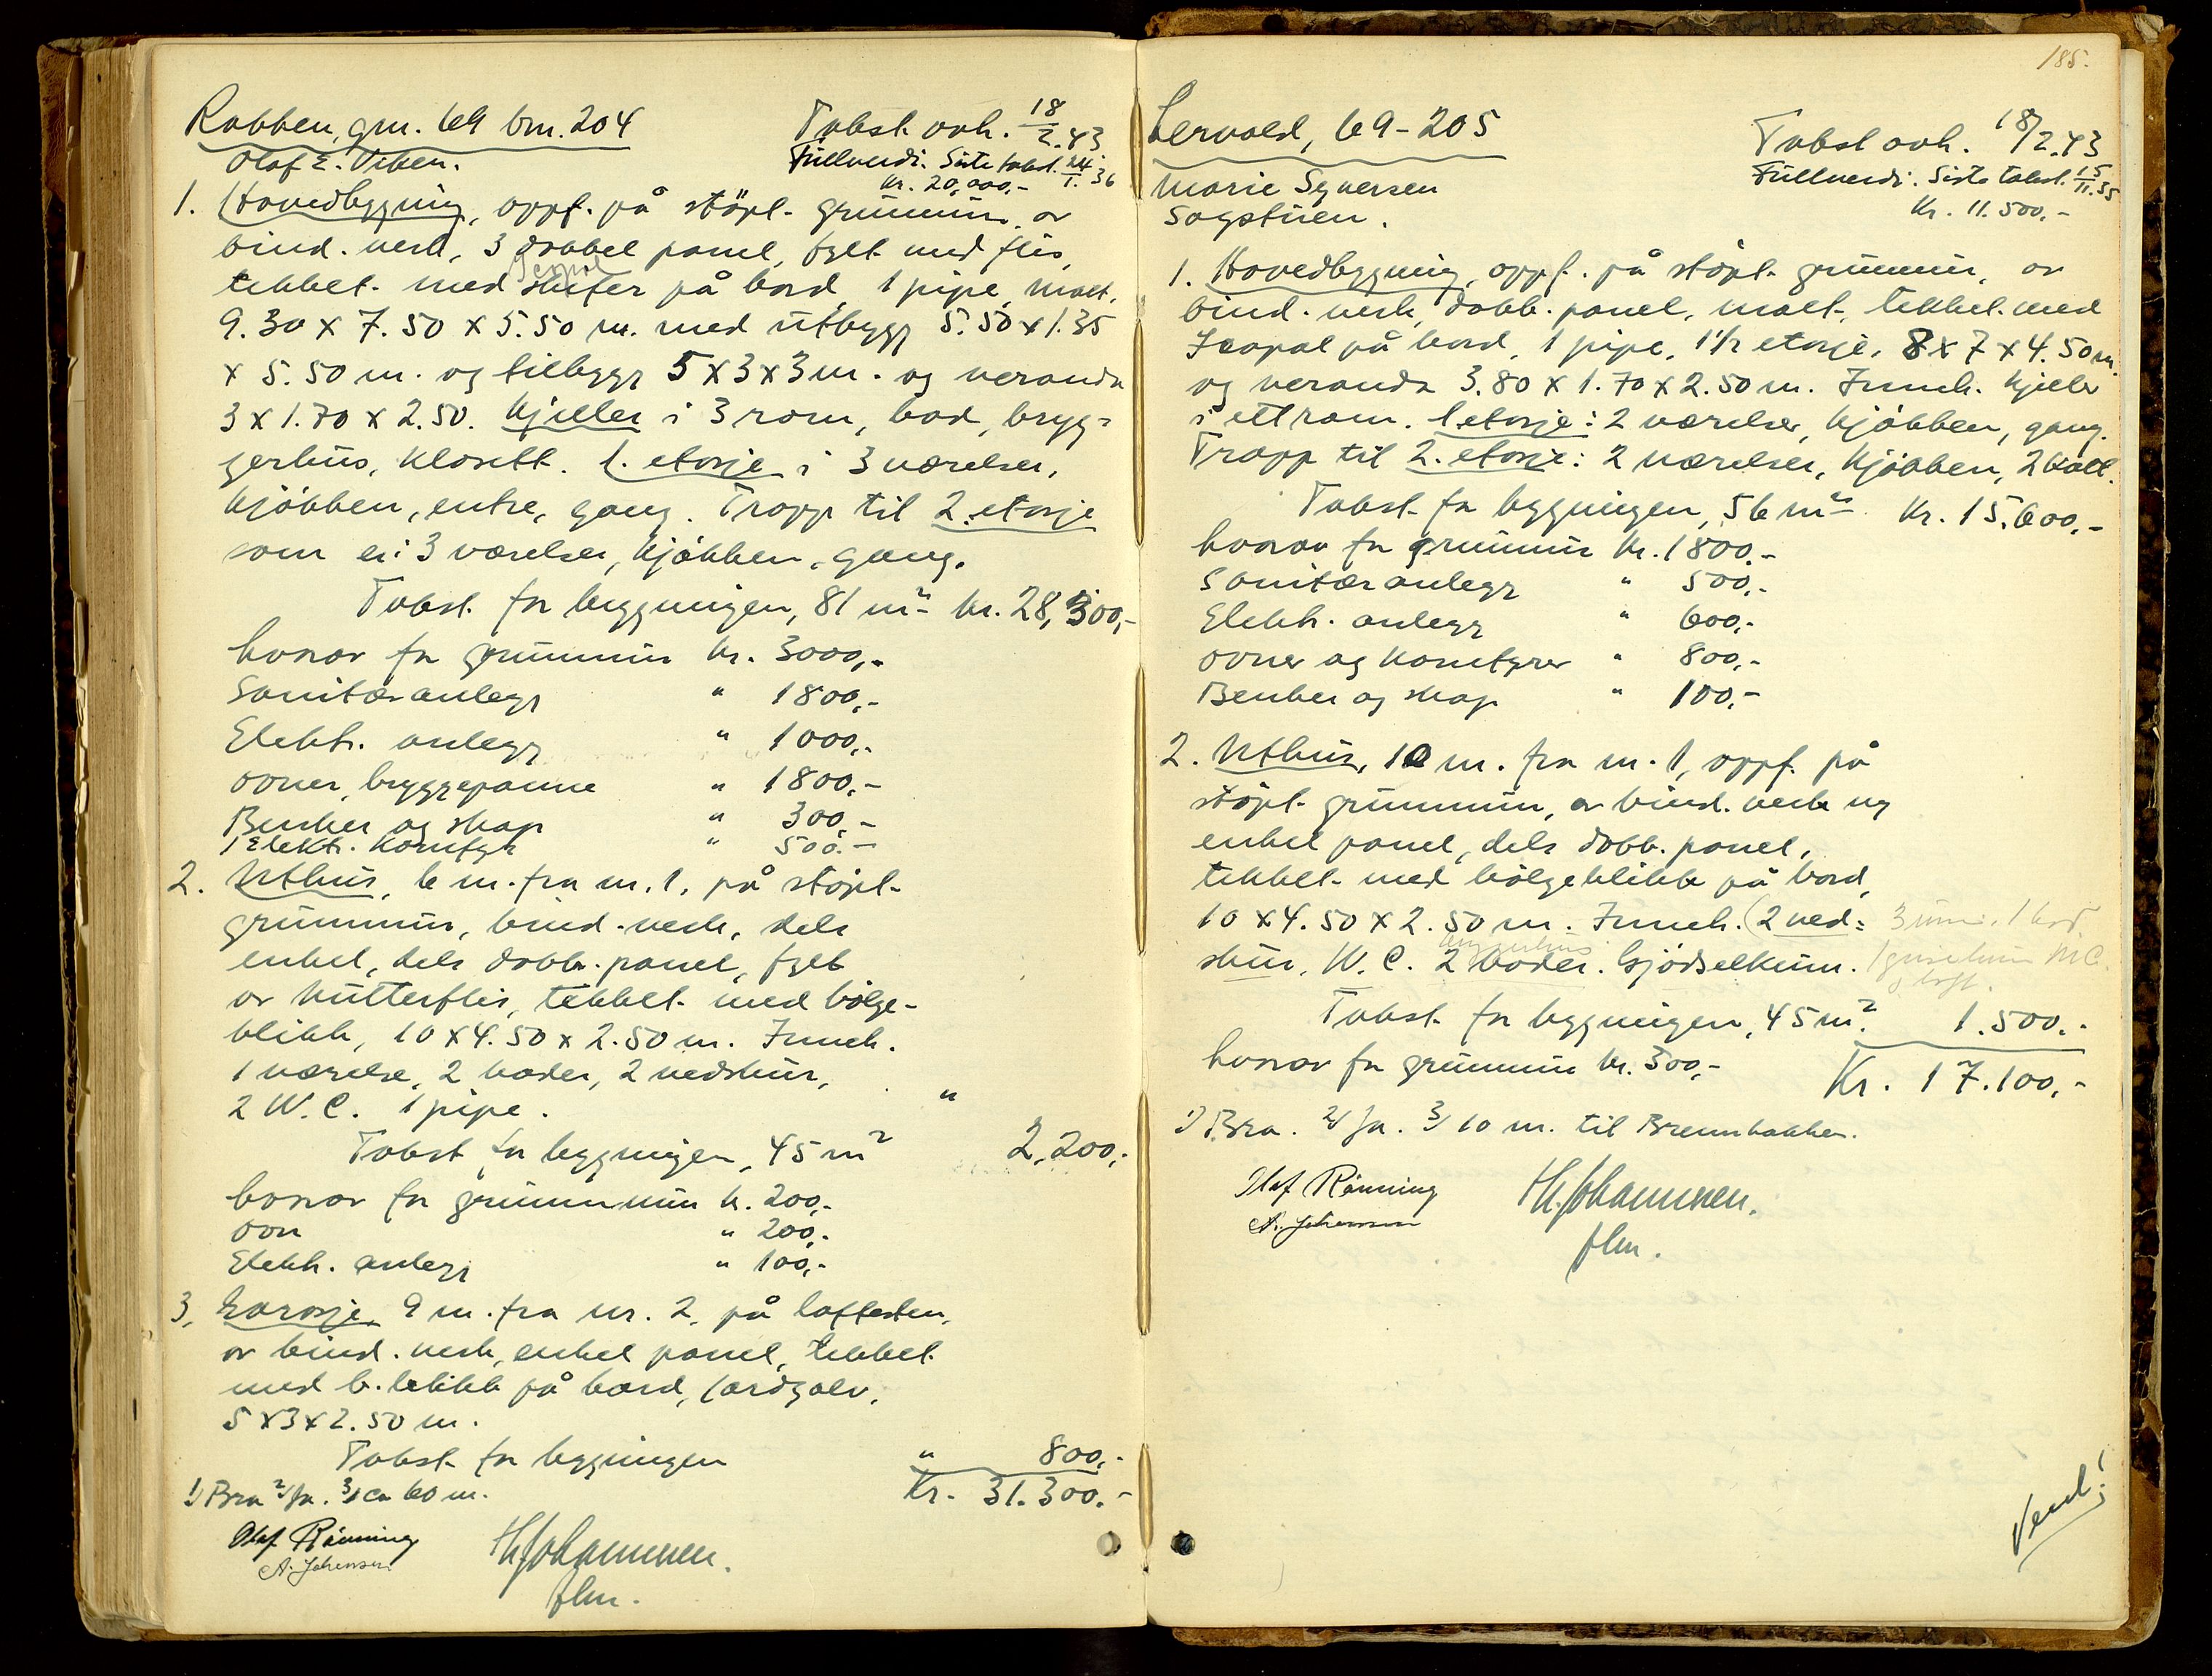 Rabben, gnr. 69 bnr. 204
Takst avh. 18/2.43
Olaf E. Viken.
Fullverdi. Siste takst. 24/1. 36
Kr. 20,000,-
1. Hovedbygning, oppf. på støpt grunnmur, av
bind.verk, 3 dobbel panel, fylt med flis,
tekket med skifer på bord, 1 pipe, malt,
9.30 x 7.50 x 5.50 m. med utbygg 5.50 x 1.35
x 5.50 m. og tilbygg 5 x 3 x 3 m. og veranda
3 x 1.70 x 2.50. Kjeller i 3 rom, bad, bryg-
gerhus, klosett. 1. etasje i 3 værelser,
kjøkken, entre, gang. Trapp til 2. etasje
som er: 3 værelser, kjøkken, gang.
Takst for bygningen, 81 m² kr. 28,300,-
hvorav for grunnmur kr. 3000,-
Sanitæranlegg " 1800,-
Elektr. anlegg " 1000,-
ovner, bryggepanne " 1800,-
Benker og skap " 300,-
1 Elektr. Komfyr " 500.-
2. Uthus, 6 m. fra nr. 1, på støpt
grunnmur, bind.verk, dels
enkel, dels dobb. panel, fylt
av kutterflis, tekket med bølge-
blikk, 10 x 4.50 x 2.50 m. Innh.
1 værelse, 2 boder, 2 vedskur,
2 W.C. 1 pipe. "
Takst for bygningen, 45 m² 2,200,-
hvorav for grunnmur kr. 200,-
ovn " 200,-
Elektr. anlegg " 100,-
3. Garasje, 9 m. fra nr. 2, på
av bind.verk, enkel panel, tekket
med b.blikk på bord, jordgolv,
5 x 3 x 2.50 m.
Takst for bygningen " 800,-
1) Bra 2) Ja. 3) ca 60 m.
Kr. 31.300.-
Olaf Rønning
A. Johansen
H. Johannesen.
flm.
185.
Lervold, 69-205
Takst avh. 18/2.43
Marie Syversen
Fullverdi. Siste takst. 15/11.35
Sagstuen.
Kr. 11.500,-
1. Hovedbygning, oppf. på støpt grunnmur, av
bind.verk, dobb. panel, malt, tekket med
Icopal på bord, 1 pipe, 1 1/2 etasje, 8 x 7 x 4.50 m.
og veranda 3.80 x 1.70 x 2.50 m. Innh. kjeller
i ett rom. 1. etasje: 2 værelser, kjøkken, gang.
Trapp til 2. etasje: 2 værelser, kjøkken, 2 kott.
Takst for bygningen, 56 m² Kr. 15.600,-
hvorav for grunnmur kr. 1800.-
Sanitæranlegg " 500,-
Elektr. anlegg " 600,-
ovner og komfyrer " 800,-
Benker og skap " 100,-
2. Uthus, 10 m. fra nr. 1, oppf. på
støpt grunnmur, av bind.verk og
enkel panel, dels dobb. panel,
tekket med bølgeblikk på bord,
10 x 4.50 x 2.50 m. Innh. (2 ved-
bryggerhus
skur, W.C. 2 boder. Gjødselkum.
Takst for bygningen, 45 m². 1.500.-
hvorav for grunnmur kr. 300,-
Kr. 17.100,-
1) Bra. 2) Ja. 3) 10 m. til Brennbakken.
Olaf Rønning
A. Johansen
H. Johannesen.
flm.
Vend!